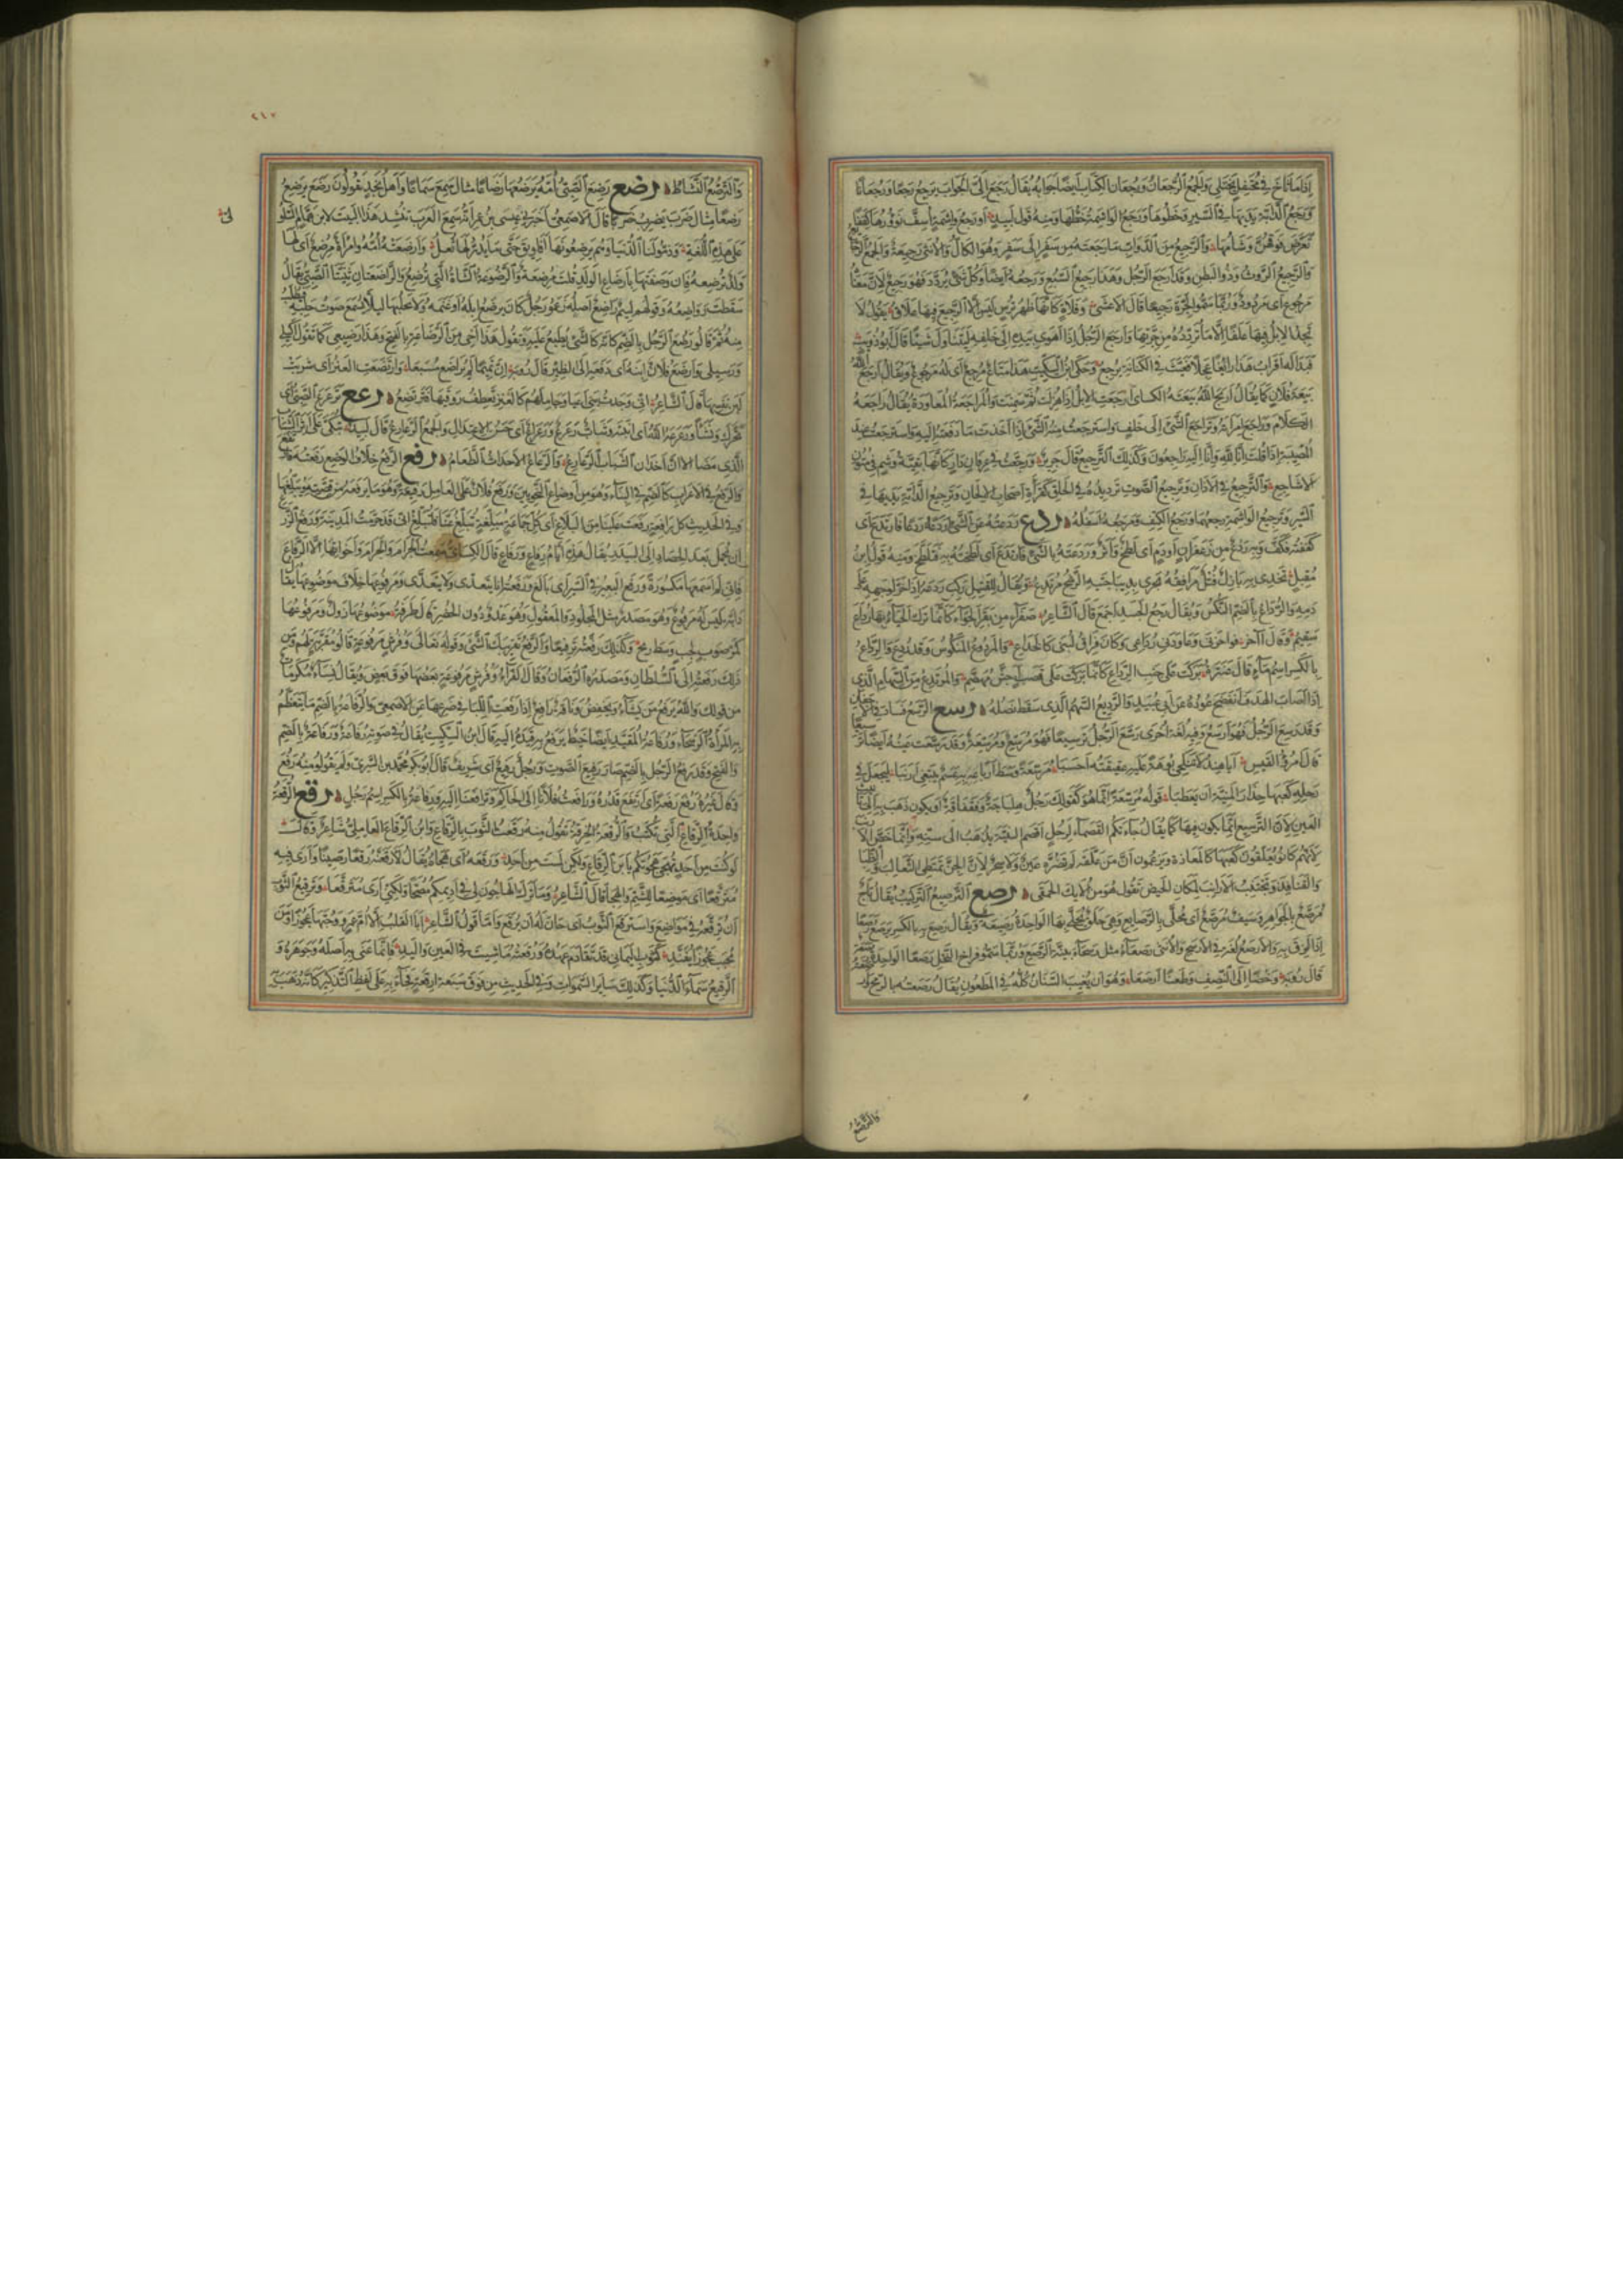 إذا ما ثاخ في محتفل يختلي والجمع الرجعان ورجعان الكتاب أيضا جوابه يقال رجع إلى الجواب يرجع رجعا ورجعانا
ورجع الدابة يديها في السير وخطوها ورجع الواشمة خطها ومنه قول لبيد أو رجع واشمة أسف نؤورها كففا
تعرض فوقهن وشامها والرجيع من الدواب ما رجعته من سفر إلى سفر وهو الكال والأنثى رجيعة والجمع
والرجيع الروث وذو البطن وقد أرجع الرجل وهذا رجيع السبع ورجعه أيضا وكل شيء يردد فهو رجيع لأن معناه
مرجوع أي مردود وربما سموا الجرة رجيعا قال الأعشى وفلاة كأنها ظهر ترس ليس إلا الرجيع فيها علاق يقول لا
تجد الإبل فيها علقا إلا ما تردده من جرتها وأرجع الرجل إذا أهوى بيده إلى خلفه ليتناول شيئا قال أبو ذؤيب
فبدا له أقراب هذا رائغا عجلا فعيث في الكنانة يرجع وحكى ابن السكيت هذا متاع مرجع أي له مرجوع ويقال أرجع الله
بيعة فلان كما يقال أربح الله بيعته الكسائي أرجعت الإبل إذا هزلت ثم سمنت والمراجعة المعاودة يقال راجعه
الكلام وراجع امرأته وتراجع الشيء إلى خلف واسترجعت منه الشيء إذا أخذت ما دفعته إليه واسترجعت عند
المصيبة إذا قلت إنا لله وإنا إليه راجعون وكذلك الترجيع قال جرير ورجعت في عرفان دار كأنها بقية وشم في متون
الأشاجع والترجيع في الأذان وترجيع الصوت ترديده في الحلق كقراءة أصحاب الألحان وترجيع الدابة يديها في
السير وترجيع الواشمة رجعها ورجع الكتف ومرجعه أسفله ردع ردعته عن الشيء أردعه ردعا فارتدع أي
كففته فكف وبه ردع من زعفران أو دم أي لطخ وأثر وردعته بالشيء فارتدع أي لطخته به فتلطخ ومنه قول ابن
مقبل تخدي به بازل فتل مرافقه تجري بديباجتيه الرشح مرتدع ويقال للقتيل ركب ردعه إذا خر لوجهه على
دمه والرداع بالضم النكس ويقال وجع الجسد أجمع قال الشاعر صفراء من بقر الجواء كأنما ترك الحياء بها رداع
سقيم وقال آخر فواحزنا وعاودني رداعي وكان فراق لبنى كالخداع والمردوع المنكوس وقد ردع والرداع
بالكسر اسم ماء قال عنترة بركت على جنب الرداع كأنما بركت على قصب أجش مهضم والمرتدع من السهام الذي
إذا أصاب الهدف انفضخ عوده عن أبي عبيد والرديع السهم الذي سقط نصله رسع الرسع فساد في الأجفان
وقد رسع الرجل فهو أرسع وفيه لغة أخرى رسع الرجل ترسيعا فهو مرسع ومرسعة وقد رسعت عينه أيضا ترسيعا
قال امرؤ القيس أيا هند لا تنكحي بوهة عليه عقيقته أحسبا مرسعة وسط أرباعه به عسم يبتغي أرنبا ليجعل في
رجله كعبها حذار المنية أن يعطبا قوله مرسعة إنما هو كقولك رجل هلباجة وفقفاقة أو يكون ذهب به إلى تأنيث
العين لأن الترسيع إنما يكون فيها كما يقال جاءتكم القصماء لرجل أقصم الثنية يذهب إلى سنه وإنما خص الأرنب
لأنهم كانوا يعلقون كعبها كالمعاذة ويزعمون أن من علقه لم تضره عين ولا سحر لأن الجن تمتطي الثعالب والظباء
والقنافذ وتجتنب الأرانب لمكان الحيض تقول هو من أولئك الحمقى رصع الترصيع التركيب يقال تاج
مرصع بالجواهر وسيف مرصع أي محلى بالرصائع وهي حلق يحلى بها الواحدة رصيعة ويقال رصع به بالكسر يرصع رصعا
إذا لزق به والأرصع لغة في الأرسح والأنثى رصعاء مثل رسحاء بينة الرصع وربما سموا فراخ النحل رصعا الواحدة رصعة
قال رؤبة وخضا إلى النصف وطعنا أرصعا وهو أن يغيب السنان كله في المطعون يقال رصعته بالرمح
والترصع
٢١٧
والترصع النشاط رضع رضع الصبي أمه يرضعها رضاعا مثال سمع سماعا وأهل نجد يقولون رضع يرضع
رضعا مثال ضرب يضرب ضربا قال الأصمعي أخبرني عيسى بن عمر أنه سمع العرب تنشد هذا البيت لابن همام السلولي
على هذه اللغة وذموا لنا الدنيا وهم يرضعونها أفاويق حتى ما يدر لها ثعل وأرضعته أمه وامرأة مرضع أي لها
ولد ترضعه فإن وصفتها بإرضاع الولد قلت مرضعة والرضوعة الشاة التي ترضع والراضعتان ثنيتا الصبي يقال
سقطت رواضعه وقولهم لئيم راضع أصله زعموا رجل كان يرضع إبله أو غنمه ولا يحلبها لئلا يسمع صوت حلبه فيطلب
منه ثم قالوا رضع الرجل بالضم كأنه كالشيء يطبع عليه وتقول هذا أخي من الرضاعة بالفتح وهذا رضيعي كما تقول أكيلي
ورسيلي وأرضع فلان ابنه أي دفعه إلى الظئر قال رؤبة إن تميما لم يراضع مسبعا وارتضعت العنز أي شربت
لبن نفسها قال الشاعر إني وجدت بني أعيا وجاملهم كالعنز تعطف روقيها فترتضع رعع ترعرع الصبي أي
تحرك ونشأ ورعرعه الله أي أنبته وشاب رعرع ورعراع أي حسن الاعتدال والجمع الرعارع قال لبيد تبكي على إثر الشباب
الذي مضى ألا إن أخدان الشباب الرعارع والرعاع الأحداث الطغام رفع الرفع خلاف الوضع رفعته فارتفع
والرفع في الإعراب كالضم في البناء وهو من أوضاع النحويين ورفع فلان على العامل رفيعة وهو ما يرفعه من قصته ويبلغها
وفي الحديث كل رافعة رفعت علينا من البلاغ أي كل جماعة مبلغة تبلغ عنا فلتبلغ أني قد حرمت المدينة ورفع الزرع
أن يحمل بعد الحصاد إلى البيدر يقال هذه أيام رفاع ورفاع قال الكسائي سمعت الجرام والجرام وأخواتها إلا الرفاع
فإني لم أسمعها مكسورة ورفع البعير في السير أي بالغ ورفعته أنا يتعدى ولا يتعدى ومرفوعها خلاف موضوعها يقال
دابة ليس له مرفوع وهو مصدر مثل المجلود والمعقول وهو عدو دون الحضر قال طرفة موضوعها زول ومرفوعها
كمر صوب لجب وسط ريح وكذلك رفعته ترفيعا والرفع تقريبك الشيء وقوله تعالى وفرش مرفوعة قالوا مقربة لهم ومن
ذلك رفعته إلى السلطان ومصدره الرفعان وقال الفراء وفرش مرفوعة بعضها فوق بعض ويقال نساء مكرمات
من قولك والله يرفع من يشاء ويخفض وناقة رافع إذا رفعت اللبأ في ضرعها عن الأصمعي والرفاعة بالضم ما تتعظم
به المرأة الرسحاء ورفاعة المقيد أيضا خيط يرفع به قيده إليه قال ابن السكيت يقال في صوته رفاعة ورفاعة بالضم
والفتح وقد رفع الرجل بالضم صار رفيع الصوت ورجل رفيع أي شريف قال أبو بكر محمد بن السري ولم يقولوا منه رفع
وقال غيره رفع رفعة أي ارتفع قدره ورافعت فلانا إلى الحاكم وترافعنا إليه ورفاعة بالكسر اسم رجل رقع الرقعة
واحدة الرقاع التي تكتب والرقعة الخرقة تقول منه رقعت الثوب بالرقاع وابن الرقاع العاملي شاعر وقالت
لو كنت من أحد يهجى هجوتكم يا ابن الرقاع ولكن لست من أحد ورقعه أي هجاه يقال لأرقعنه رقعا رصينا وأرى فيه
مترقعا أي موضعا للشتم والهجاء قال الشاعر وما ترك الهاجون لي في أديمكم مصحا ولكني أرى مترقعا وترقيع الثوب
أن ترقعه في مواضع واسترقع الثوب أي حان له أن يرقع وأما قول الشاعر أبى القلب إلا أم عمرو وحبها عجوزا ومن
يحبب عجوزا يفند كثوب اليماني قد تقادم عهده ورقعته ما شئت في العين واليد فإنما عنى به أصله وجوهره و
الرقيع سماء الدنيا وكذلك سائر السموات وفي الحديث من فوق سبعة أرقعة فجاء به على لفظ التذكير كأنه ذهب به